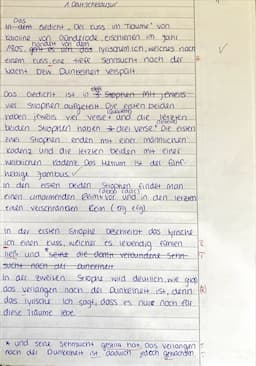 1. Deutschklausur
Das
In dem Gedicht „Der Kuss im Traume" von
Karoline von Günderode, erschienen im Jahr
1805, geht es um das lyrischem ich, welches nach
handelt von dem
einem Kuss eine tiefe Sehnsucht nach der
Nacht bzw. Dunkelheit verspürt.
Das Gedicht ist in Strophen mit jeweils
vier Strophen aufgeteilt. Die ersten beiden
haben jeweils vier Verse und die letzten
(Quartett)
beiden Strophen haben drei Verse. Die ersten
(Terzett)
zwei Strophen enden mit einer männlichen
Kadenz und die letzten beiden mit einer
weiblichen Kadenz. Das Metrum ist der fünf-
hebige Jambus.
In den ersten beiden Strophen findet man
einen umarmenden Reim vor und in den letzten
einen verschränkten Reim (efg efg).
In der ersten Strophe beschreibt das lyrische
ich einen Kuss, welcher es lebendig fühlen
ließ und seine die damit verbundene Sehn-
sucht nach der Dunkelheit.
In der zweiten Strophe wird deutlich, wie groß
das Verlangen nach der Dunkelheit ist, denn
das lyrische Ich sagt, dass es nur noch für
diese Träume lebe.
* und seine Sehnsucht gestillt hat. Das Verlangen
nach der Dunkelheit ist dadurch jedoch